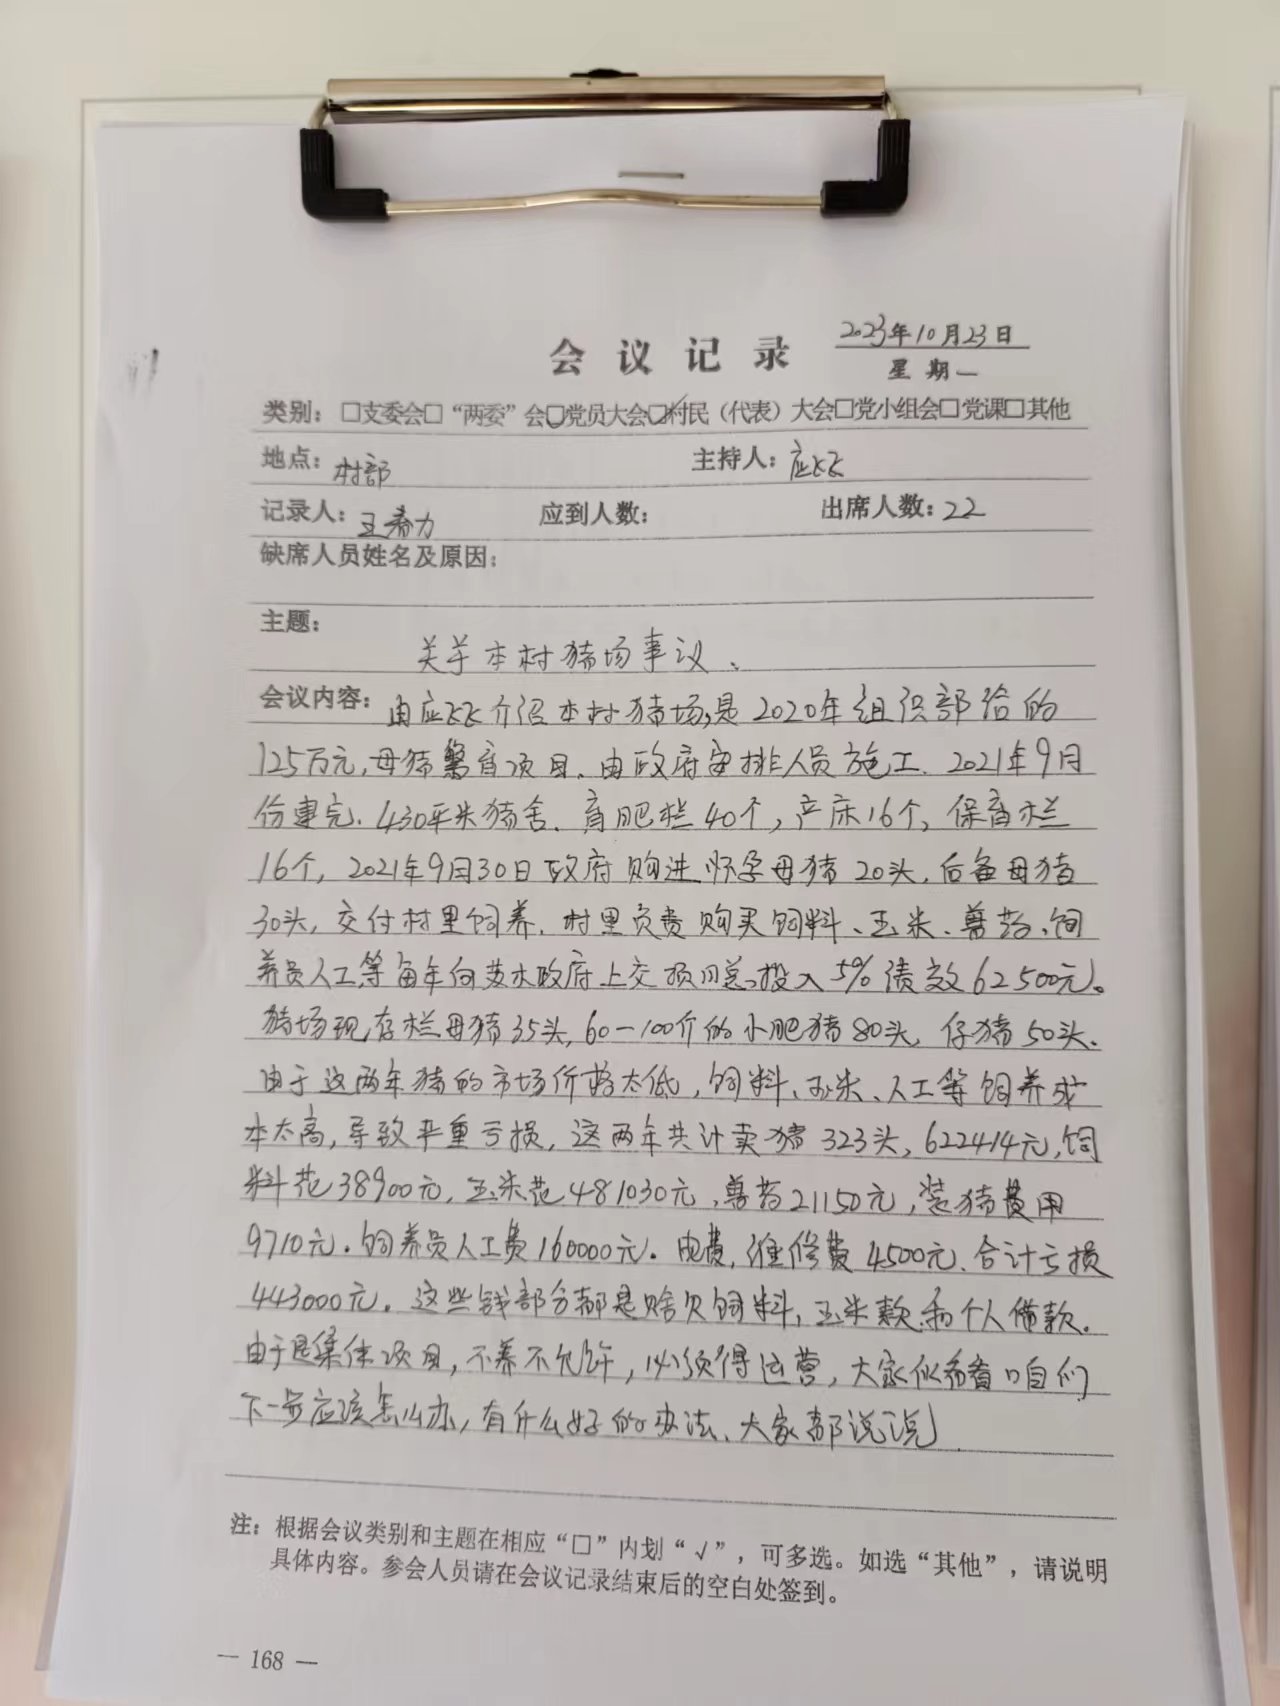 会议记录
2023年10月23日
星期一
类别：□支委会□“两委”会□党员大会☑村民（代表）大会□党小组会□党课□其他
地点：村部 主持人：应飞飞
记录人：王春力 应到人数： 出席人数：22
缺席人员姓名及原因：
主题：
关于本村猪场事议、
会议内容：由应飞飞介绍本村猪场，是2020年组织部给的
125万元，母猪繁育项目、由政府安排人员施工、2021年9月
份建完、430平米猪舍、育肥栏40个，产床16个，保育栏
16个，2021年9月30日政府购进怀孕母猪20头，后备母猪
30头，交付村里饲养，村里负责购买饲料、玉米、兽药、饲
养员人工等每年向 政府上交项目总投入5%绩效62500元。
猪场现存栏母猪35头，60—100斤的小肥猪80头，仔猪50头、
由于这两年猪的市场价格太低，饲料、玉米、人工等饲养成
本太高，导致严重亏损，这两年共计卖猪323头，622414元，饲
料花38900元，玉米花481030元，兽药21150元，装猪费用
9710元。饲养员人工费160000元。电费，维修费4500元、合计亏损
443000元。这些钱部分都是赊欠饲料，玉米款和个人借款。
由于是集体项目，不养不允许，必须得运营，大家伙看看咱们
下一步应该怎么办，有什么好的办法、大家都说说
注：根据会议类别和主题在相应“□”内划“√”，可多选。如选“其他”，请说明
具体内容。参会人员请在会议记录结束后的空白处签到。
— 168 —